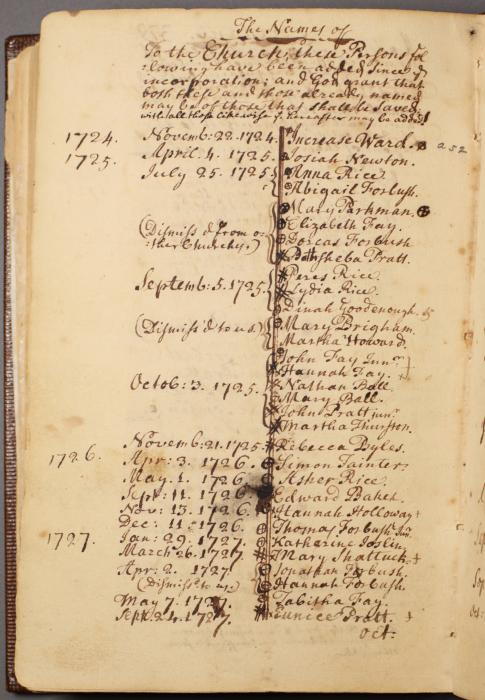 The Names of
To the Church, these Persons fol
lowing have been added since ye
incorporation; and God grant that
both these and those already named
may be of those that shall be Saved,
with all those likewise yt hereafter may be added!
1724. Novemb: 22. 1724. Increase Ward. 252
1725. April. 4. 1725. Josiah Newton.
July 25. 1725. Anna Rice
Abigail Forbush.
Mary Parkman.
(Dismiss'd from o- Elizabeth Fay.
:ther Churchs.) Dorcas Forbush
Bathsheba Pratt.
Septemb: 5. 1725. Peres Rice
Lydia Rice.
Dinah Goodenough.
(Dismiss'd to us.) Mary Brigham.
Martha Howard.
John Fay Junr
Hannah Fay.
Octob: 3. 1725. Nathan Ball
Mary Ball.
John Pratt junr
Martha Thurston.
Novemb: 21. 1725. Rebecca Byles.
1726. Apr: 3. 1726. Simon Tainter
May. 1. 1726 Asher Rice.
Sept: 11. 1726 Edward Baker.
Nov: 13. 1726. Hannah Holloway
Dec: 11. 1726. Thomas Forbush Junr
1727. Jan: 29. 1727. Katherine Joslin
March 26. 1727. Mary Shattuck
Apr: 2. 1727. Jonathan Forbush.
(Dismiss'd to us) Hannah Forbush.
May 7. 1727. Tabitha Fay.
Sept. 24. 1727. Eunice Pratt.
Oct: